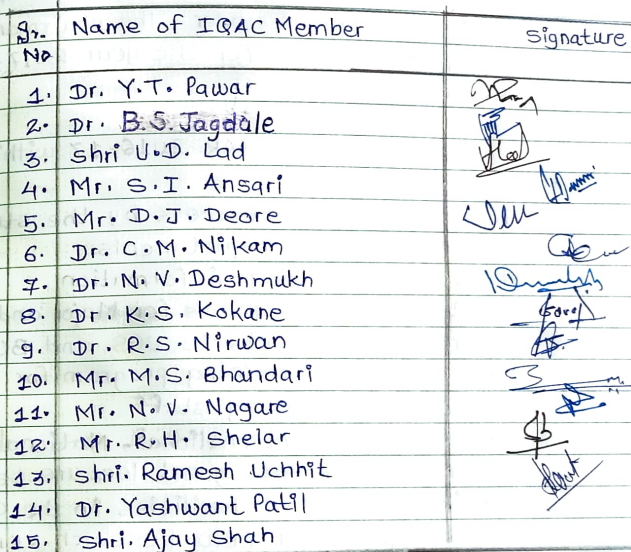 Sr. No Name of IQAC Member signature
1. Dr. Y.T. Pawar
2. Dr. B.S. Jagdale
3. Shri U.D. Lad
4. Mr. S.I. Ansari
5. Mr. D.J. Deore
6. Dr. C.M. Nikam
7. Dr. N.V. Deshmukh
8. Dr. K.S. Kokane
9. Dr. R.S. Nirwan
10. Mr. M.S. Bhandari
11. Mr. N.V. Nagare
12. Mr. R.H. Shelar
13. Shri. Ramesh Uchhit
14. Dr. Yashwant Patil
15. Shri. Ajay Shah